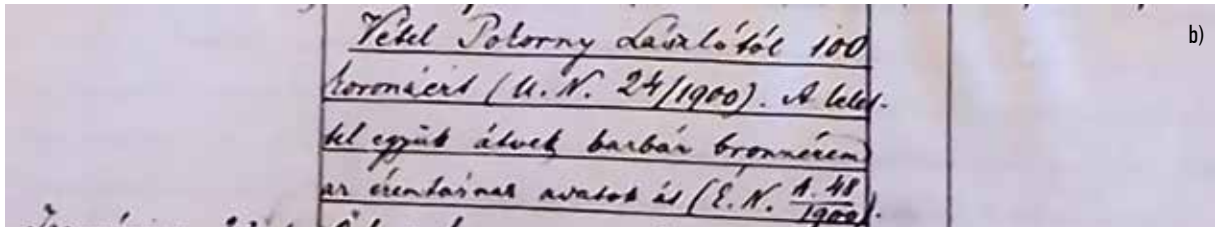 b)
Vétel Pokorny Lászlótól 100
koronáért (U. N. 24/1900). A lelet-
tel együtt átvett barbár bronzérem
az éremtárnak adatott át (É. N. A. 48/1900).